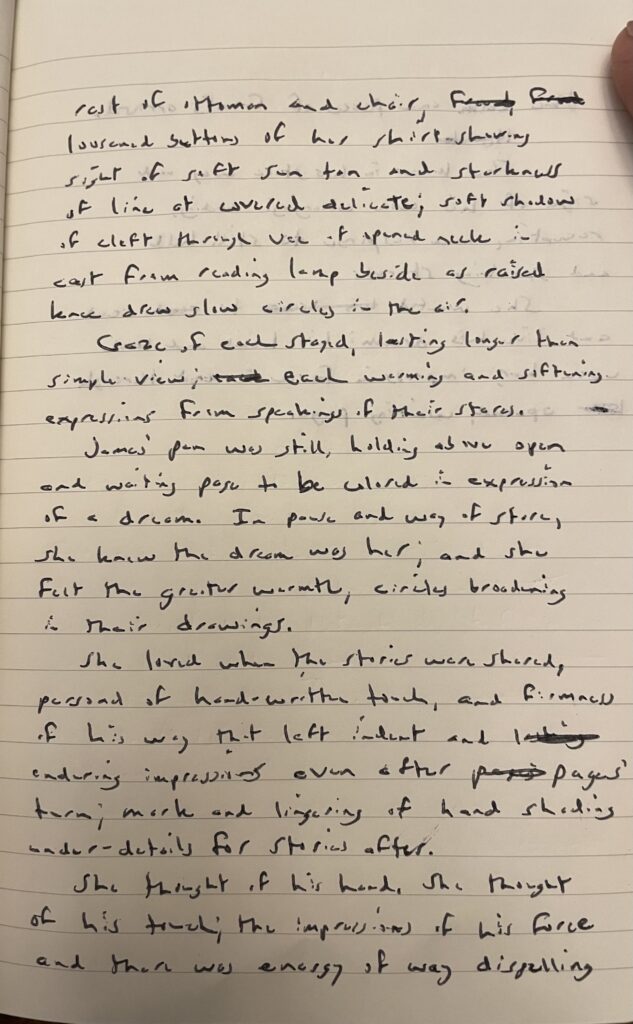 rest of ottoman and chair,
lousened buttons of her shirt showing
sight of soft sun tan and starkness
of line at covered delicate; soft shadow
of cleft through vee of opened neck in
cast from reading lamp beside as raised
knee drew slow circles in the air.
Gaze of each stayed, lasting longer than
simple view; each warming and softening
expressions from speakings of their stares.
James' pen was still, holding above open
and waiting page to be colored in expression
of a dream. In pause and way of stare,
she knew the dream was her; and she
felt the greater warmth, circles broadening
in their drawings.
She loved when the stories were shared,
personal of hand-written touch, and firmness
of his way that left indent and
enduring impressions even after pages'
turn; mark and lingering of hand shading
under-details for stories after.
She thought of his hand. She thought
of his touch; the impressions of his force
and there was energy of way dispelling